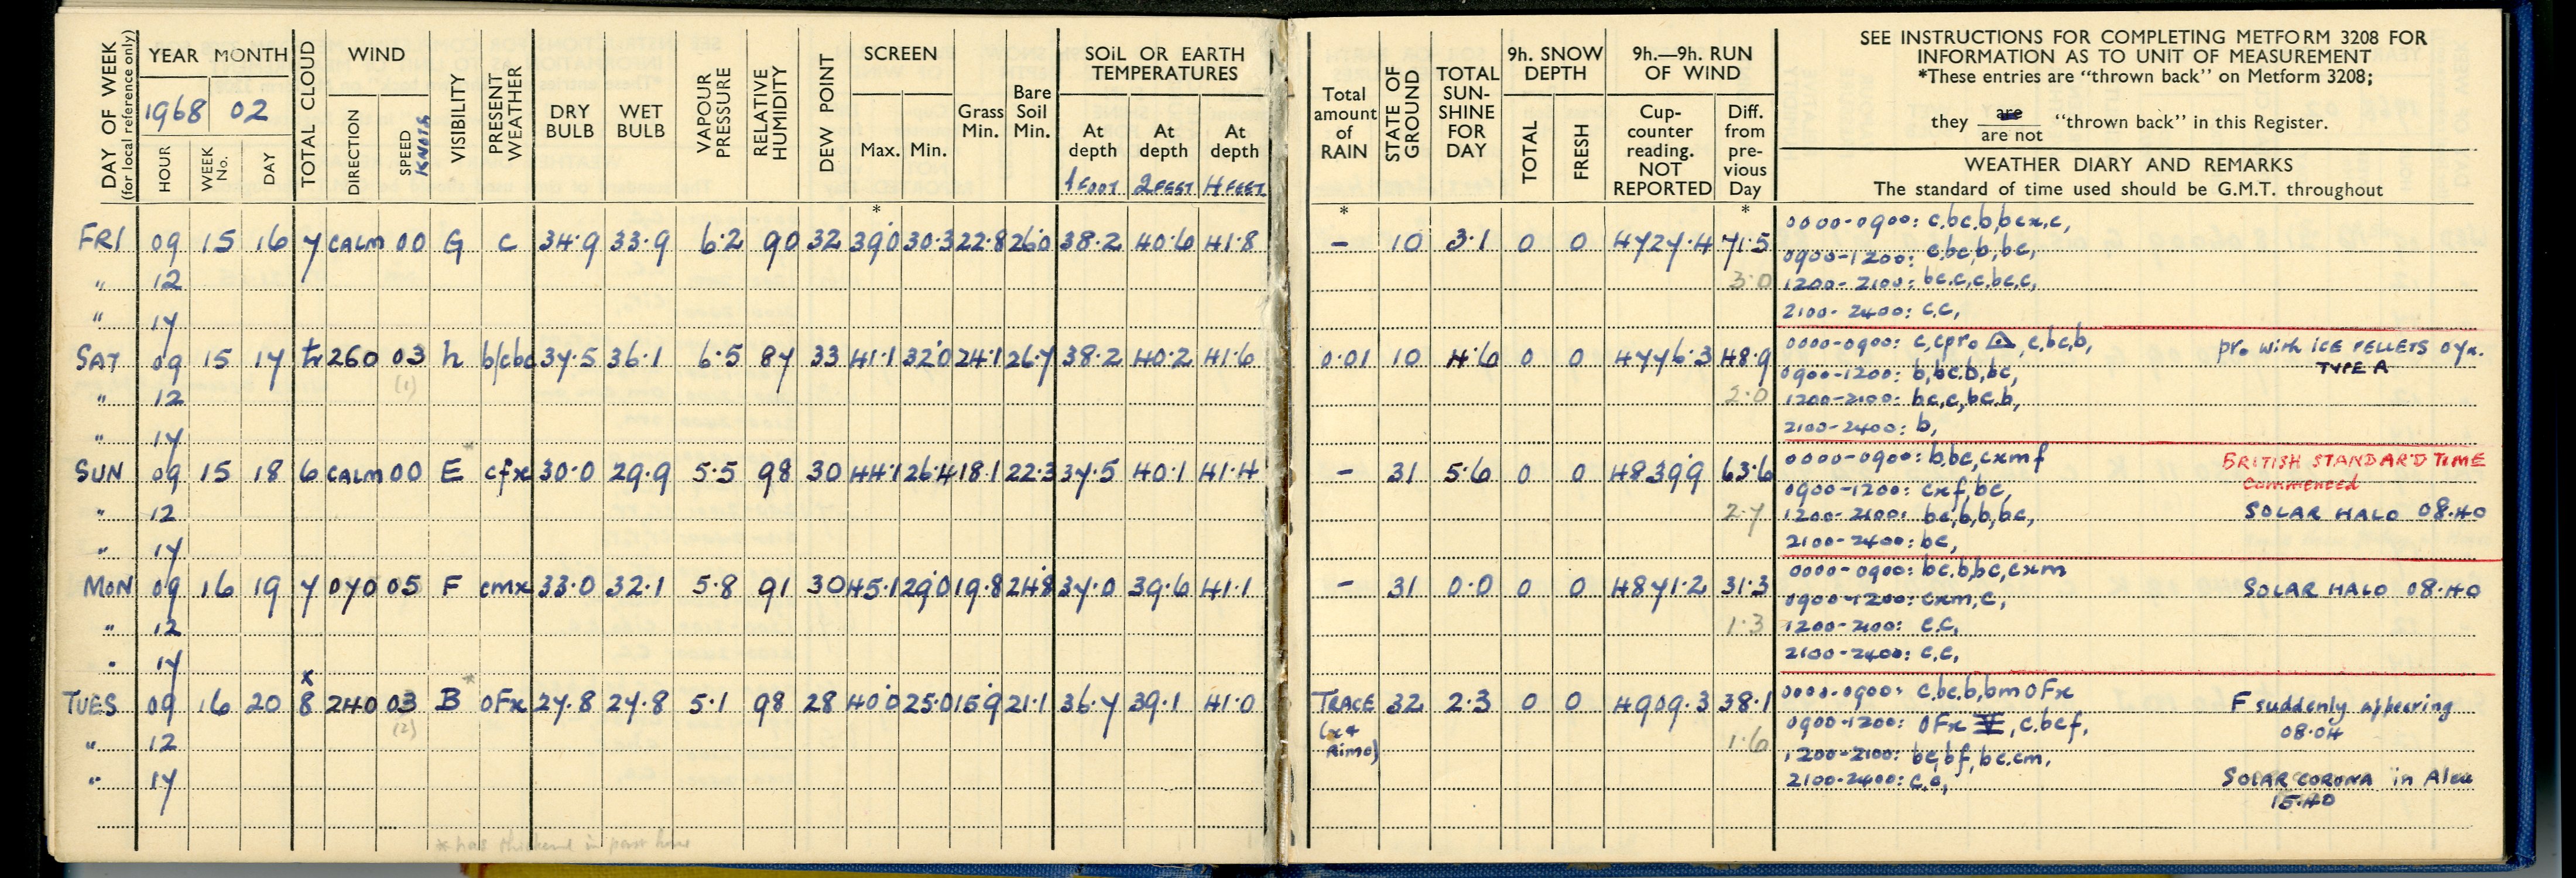 DAY OF WEEK (for local reference only) YEAR MONTH TOTAL CLOUD WIND VISIBILITY PRESENT WEATHER DRY BULB WET BULB VAPOUR PRESSURE RELATIVE HUMIDITY DEW POINT SCREEN Grass Min. Bare Soil Min. SOIL OR EARTH TEMPERATURES
1968 02
HOUR WEEK No. DAY DIRECTION SPEED KNOTS Max. Min. At depth 1 FOOT At depth 2 FEET At depth 4 FEET
Total amount of RAIN STATE OF GROUND TOTAL SUN-SHINE FOR DAY 9h. SNOW DEPTH TOTAL FRESH 9h.—9h. RUN OF WIND Cup-counter reading. NOT REPORTED Diff. from pre-vious Day
SEE INSTRUCTIONS FOR COMPLETING METFORM 3208 FOR
INFORMATION AS TO UNIT OF MEASUREMENT
*These entries are "thrown back" on Metform 3208;
they are / are not "thrown back" in this Register.
WEATHER DIARY AND REMARKS
The standard of time used should be G.M.T. throughout
* * *
FRI 09 15 16 7 CALM 00 G c 34.9 33.9 6.2 90 32 39.0 30.3 22.8 26.0 38.2 40.6 41.8 – 10 3.1 0 0 4727.4 71.5 0000-0900: c,bc.b,bcx,c,
0900-1200: c,bc,b,bc,
" 12 3.0 1200-2100: bc.c,c,bc,c,
" 17 2100-2400: c.c,
SAT 09 15 17 tr 260 03 h b/cbc 37.5 36.1 6.5 87 33 41.1 32.0 24.1 26.7 38.2 40.2 41.6 0.01 10 4.6 0 0 4776.3 48.9 0000-0900: c,cpro, c,bc,b, pro with ICE PELLETS 07x.
TYPE A
(1) 0900-1200: b,bc.b,bc,
" 12 2.0 1200-2100: bc,c,bc.b,
" 17 2100-2400: b,
SUN 09 15 18 6 CALM 00 E cfx 30.0 29.9 5.5 98 30 44.1 26.4 18.1 22.3 37.5 40.1 41.4 – 31 5.6 0 0 4839.9 63.6 0000-0900: b,bc,cxmf BRITISH STANDARD TIME
Commenced
0900-1200: cxf,bc,
" 12 2.7 1200-2100: bc,b,b,bc, SOLAR HALO 08.40
" 17 2100-2400: bc,
MON 09 16 19 7 070 05 F cmx 33.0 32.1 5.8 91 30 45.1 29.0 19.8 24.8 37.0 39.6 41.1 – 31 0.0 0 0 4871.2 31.3 0000-0900: bc.b,bc,cxm SOLAR HALO 08.40
0900-1200: cxm,c,
" 12 1.3 1200-2100: c.c,
" 17 2100-2400: c.c,
TUES 09 16 20 8 240 03 B oFx 27.8 27.8 5.1 98 28 40.0 25.0 15.9 21.1 36.7 39.1 41.0 TRACE 32 2.3 0 0 4909.3 38.1 0000-0900: c,bc,b,bmoFx F suddenly appearing
08.04
(2) (x + Rime) 0900-1200: oFx, c.bcf,
" 12 1.6 1200-2100: bc,bf,bc.cm,
" 17 2100-2400: c.c, SOLAR CORONA in
15.40
* has thickened in past hour